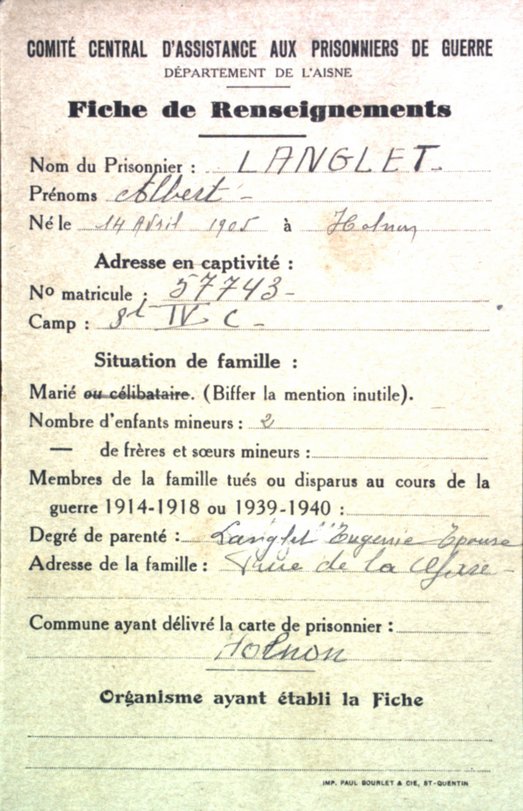 COMITÉ CENTRAL D'ASSISTANCE AUX PRISONNIERS DE GUERRE
DÉPARTEMENT DE L'AISNE
Fiche de Renseignements
Nom du Prisonnier : LANGLET
Prénoms Albert
Né le 14 Avril 1905 à Holnon
Adresse en captivité :
No matricule : 57743
Camp : Stl IV C
Situation de famille :
Marié ou célibataire. (Biffer la mention inutile).
Nombre d'enfants mineurs : 2
— de frères et sœurs mineurs :
Membres de la famille tués ou disparus au cours de la
guerre 1914-1918 ou 1939-1940 :
Degré de parenté : Langlet Eugenie Epouse
Adresse de la famille : rue de la
Commune ayant délivré la carte de prisonnier :
Holnon
Organisme ayant établi la Fiche
IMP. PAUL BOURLET & CIE, ST-QUENTIN